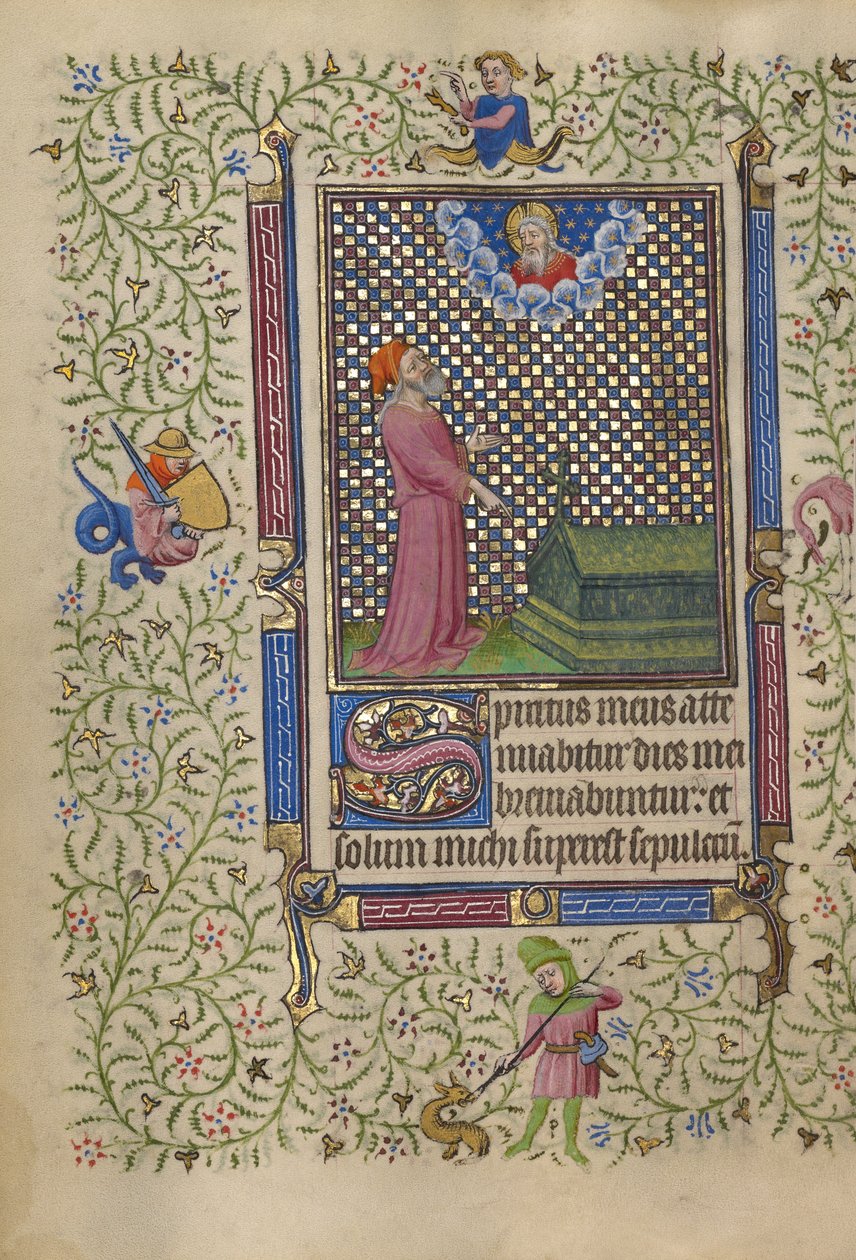 Spiritus meus atte
nuabitur dies mei
breviabuntur: et
solum michi superest sepulcrū.